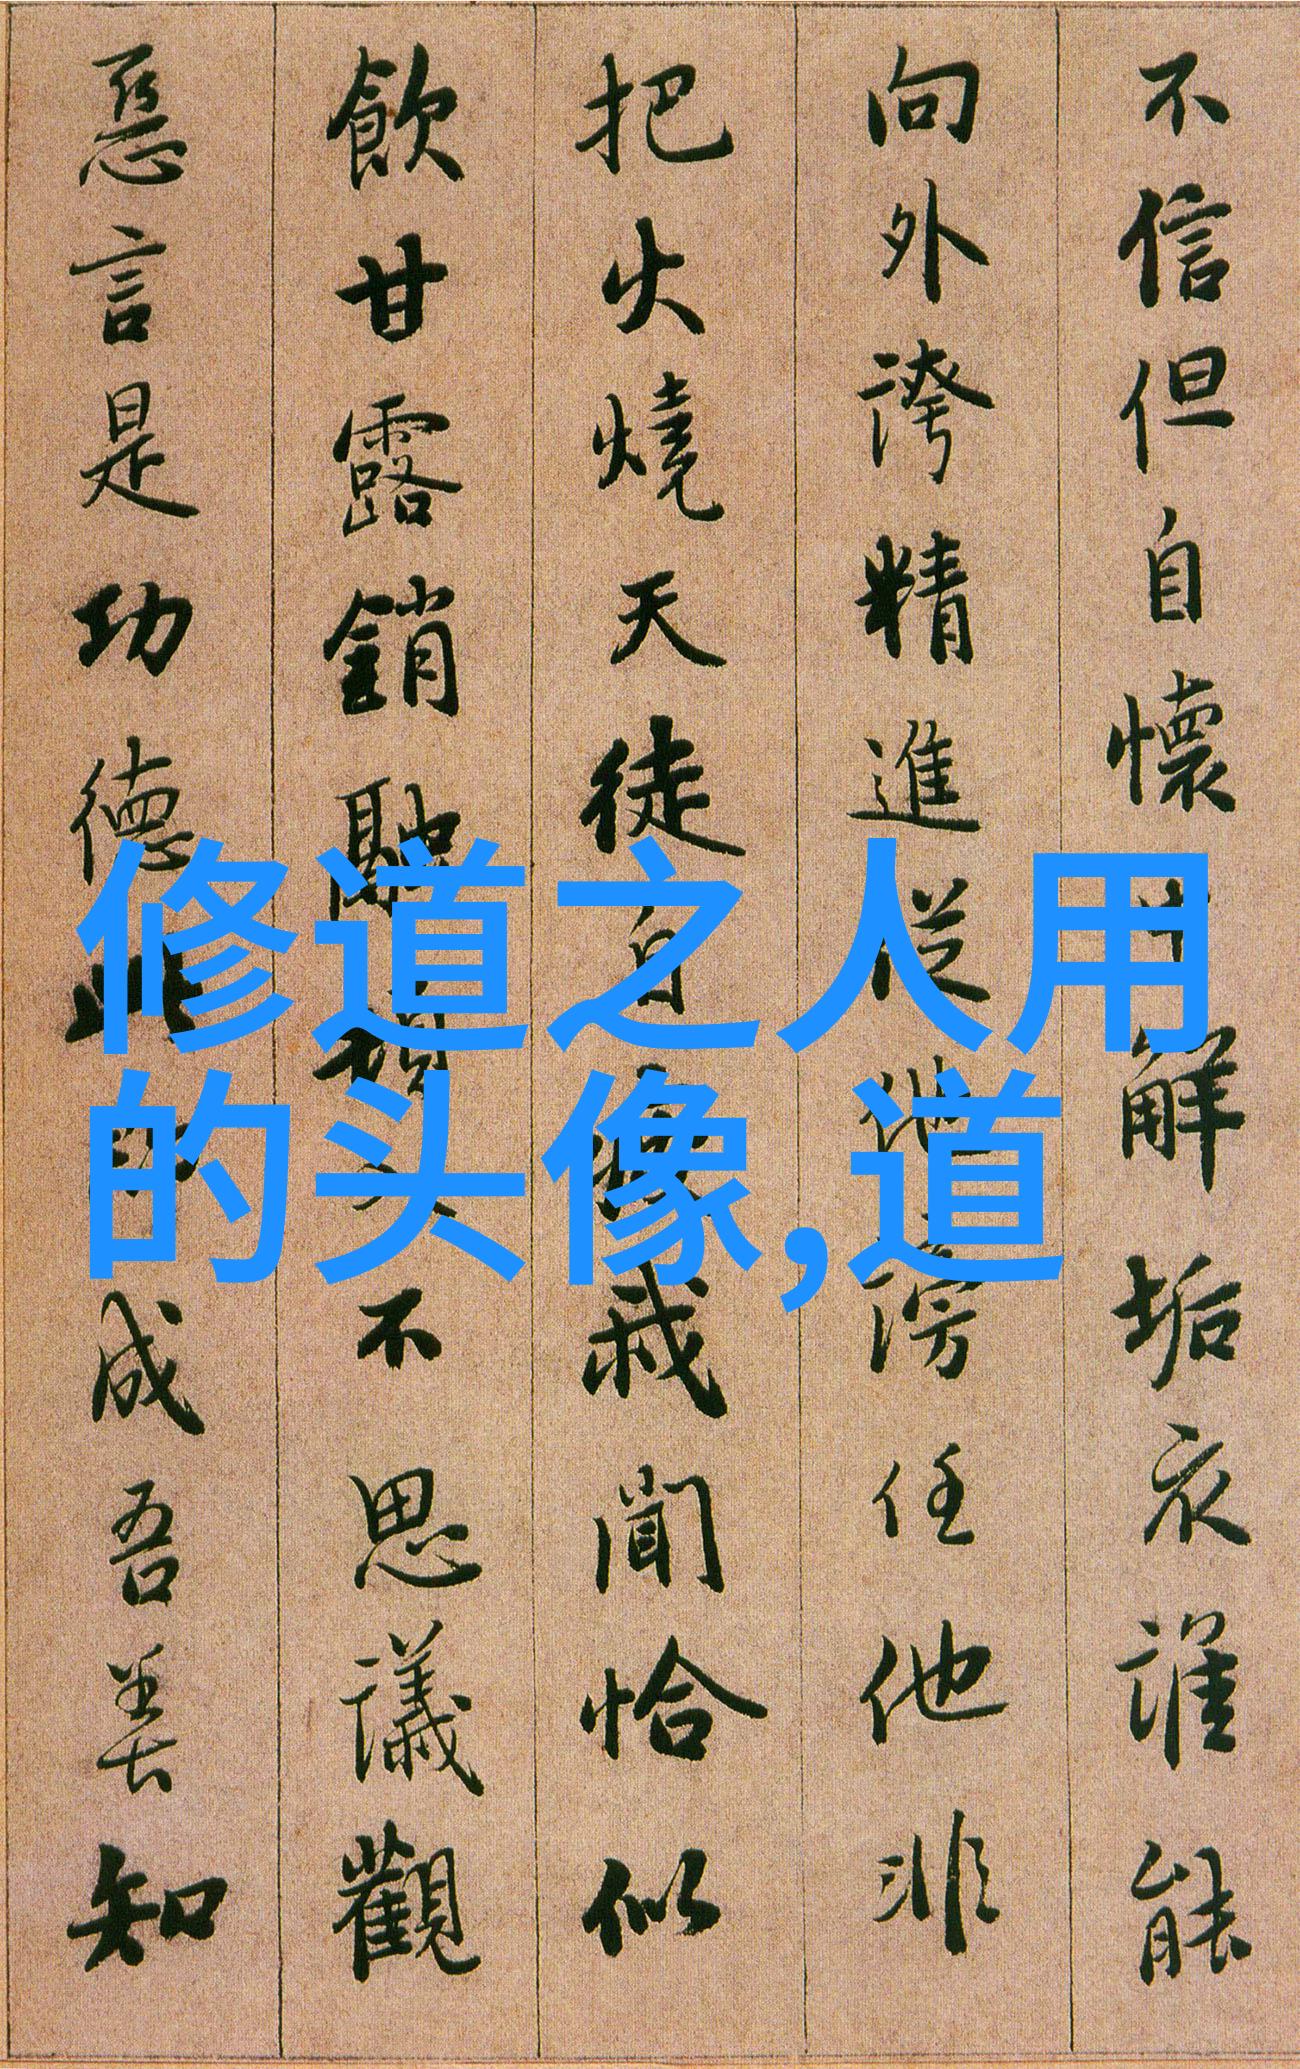 不信但自懷中解垢衣誰能
向外誇精進從他謗任他非
把火燒天徒自疲我聞恰似
飲甘露銷融頓入不思議觀
惡言是功德此即成吾善知
修道之人用
的头像,道